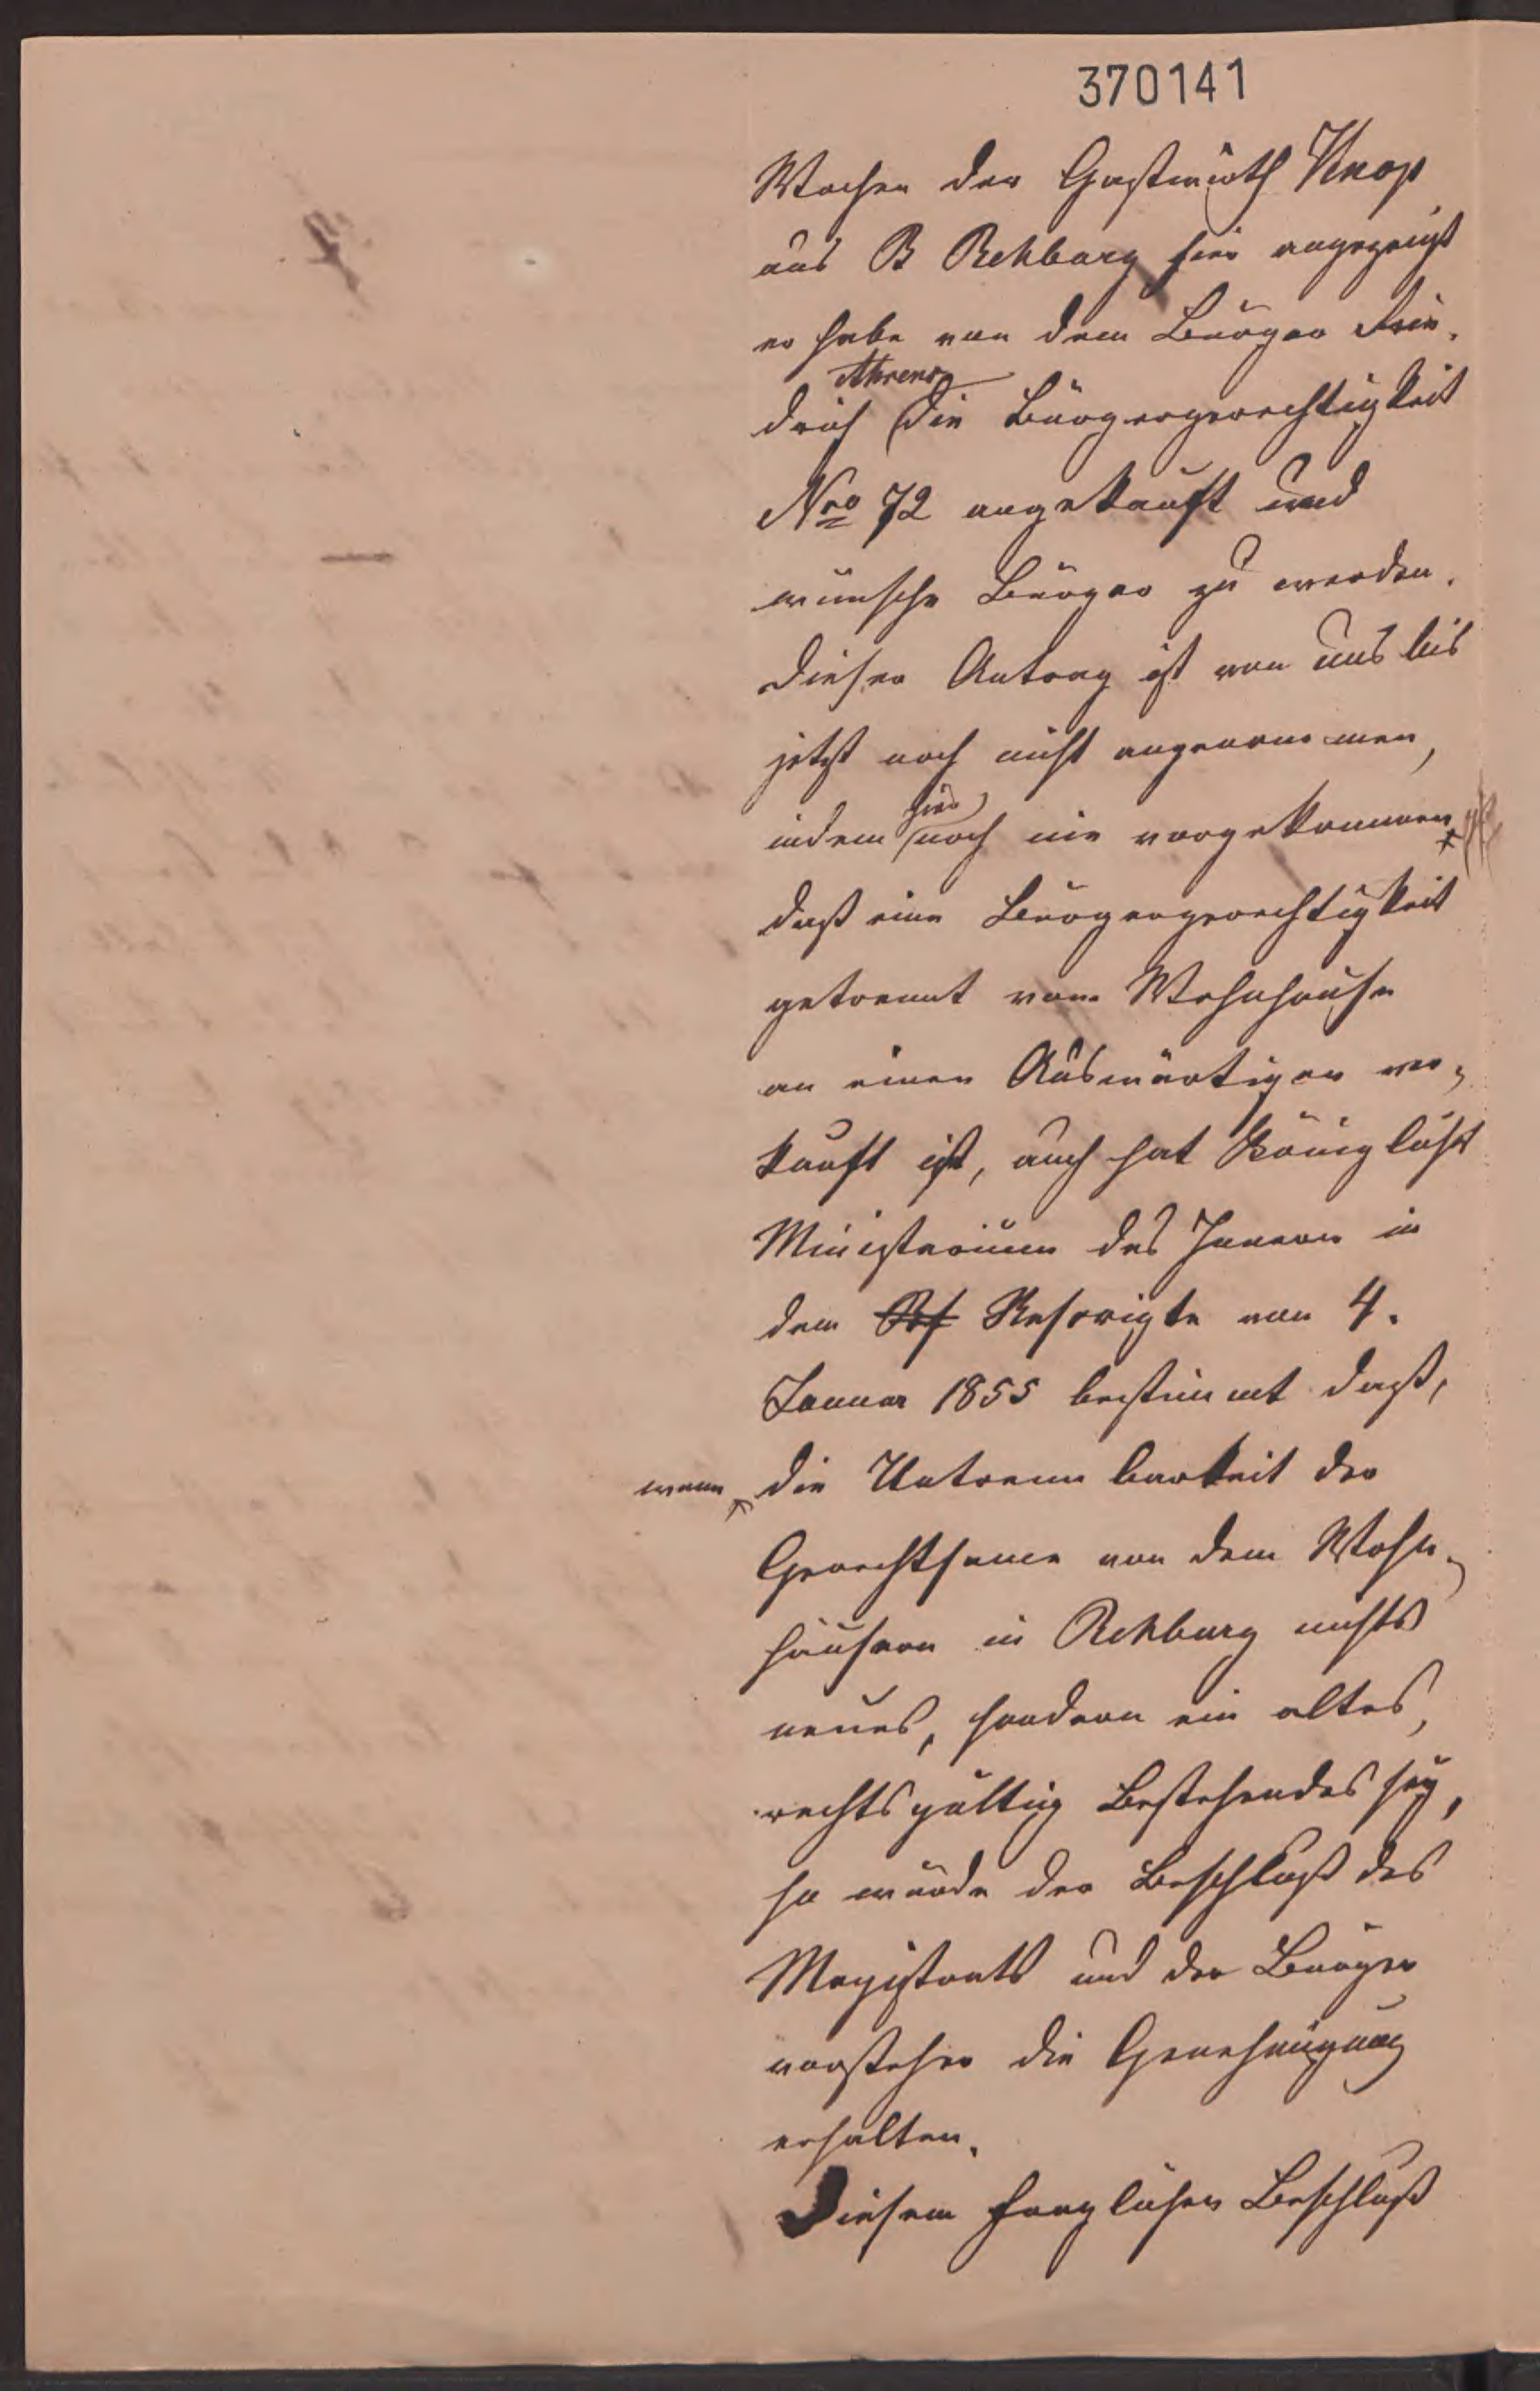 370141
Wochen der Gastwirth Knop
aus B Rehburg hier angezeigt
er habe von dem Bürger Frie-
Ahrens
drich die Bürgergerechtigkeit
Nro 72 angekauft und
wünsche Bürger zu werden.
Dieser Antrag ist von uns bis
jetzt noch nicht angenommen,
hier
indem noch nie vorgekommen
daß eine Bürgergerechtigkeit
getrennt vom Wohnhause
an einen Auswärtigen ver-
kauft ist, auch hat Königlich
Ministerium des Innern in
dem Rescripte vom 4.
Januar 1855 bestimmt daß,
wenn die Untrennbarkeit der
Gerechtsame von dem Wohn-
häusern in Rehburg nichts
neues, sondern ein altes,
rechtsgültig Bestehendes sey,
so würde der Beschluß des
Magistrats und der Bürger
vorsteher die Genehmigung
erhalten.
Diesem fraglichen Beschluß